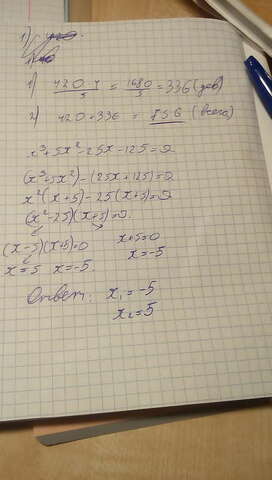 1)
1) 420·4/5 = 1680/5 = 336 (дев)
2) 420+336 = 756 (всего)
x³+5x²-25x-125=0
(x³+5x²)-(25x+125)=0
x²(x+5)-25(x+5)=0
(x²-25)(x+5)=0
(x-5)(x+5)=0 x+5=0
x=5 x=-5 x=-5
Ответ: x₁=-5
x₂=5